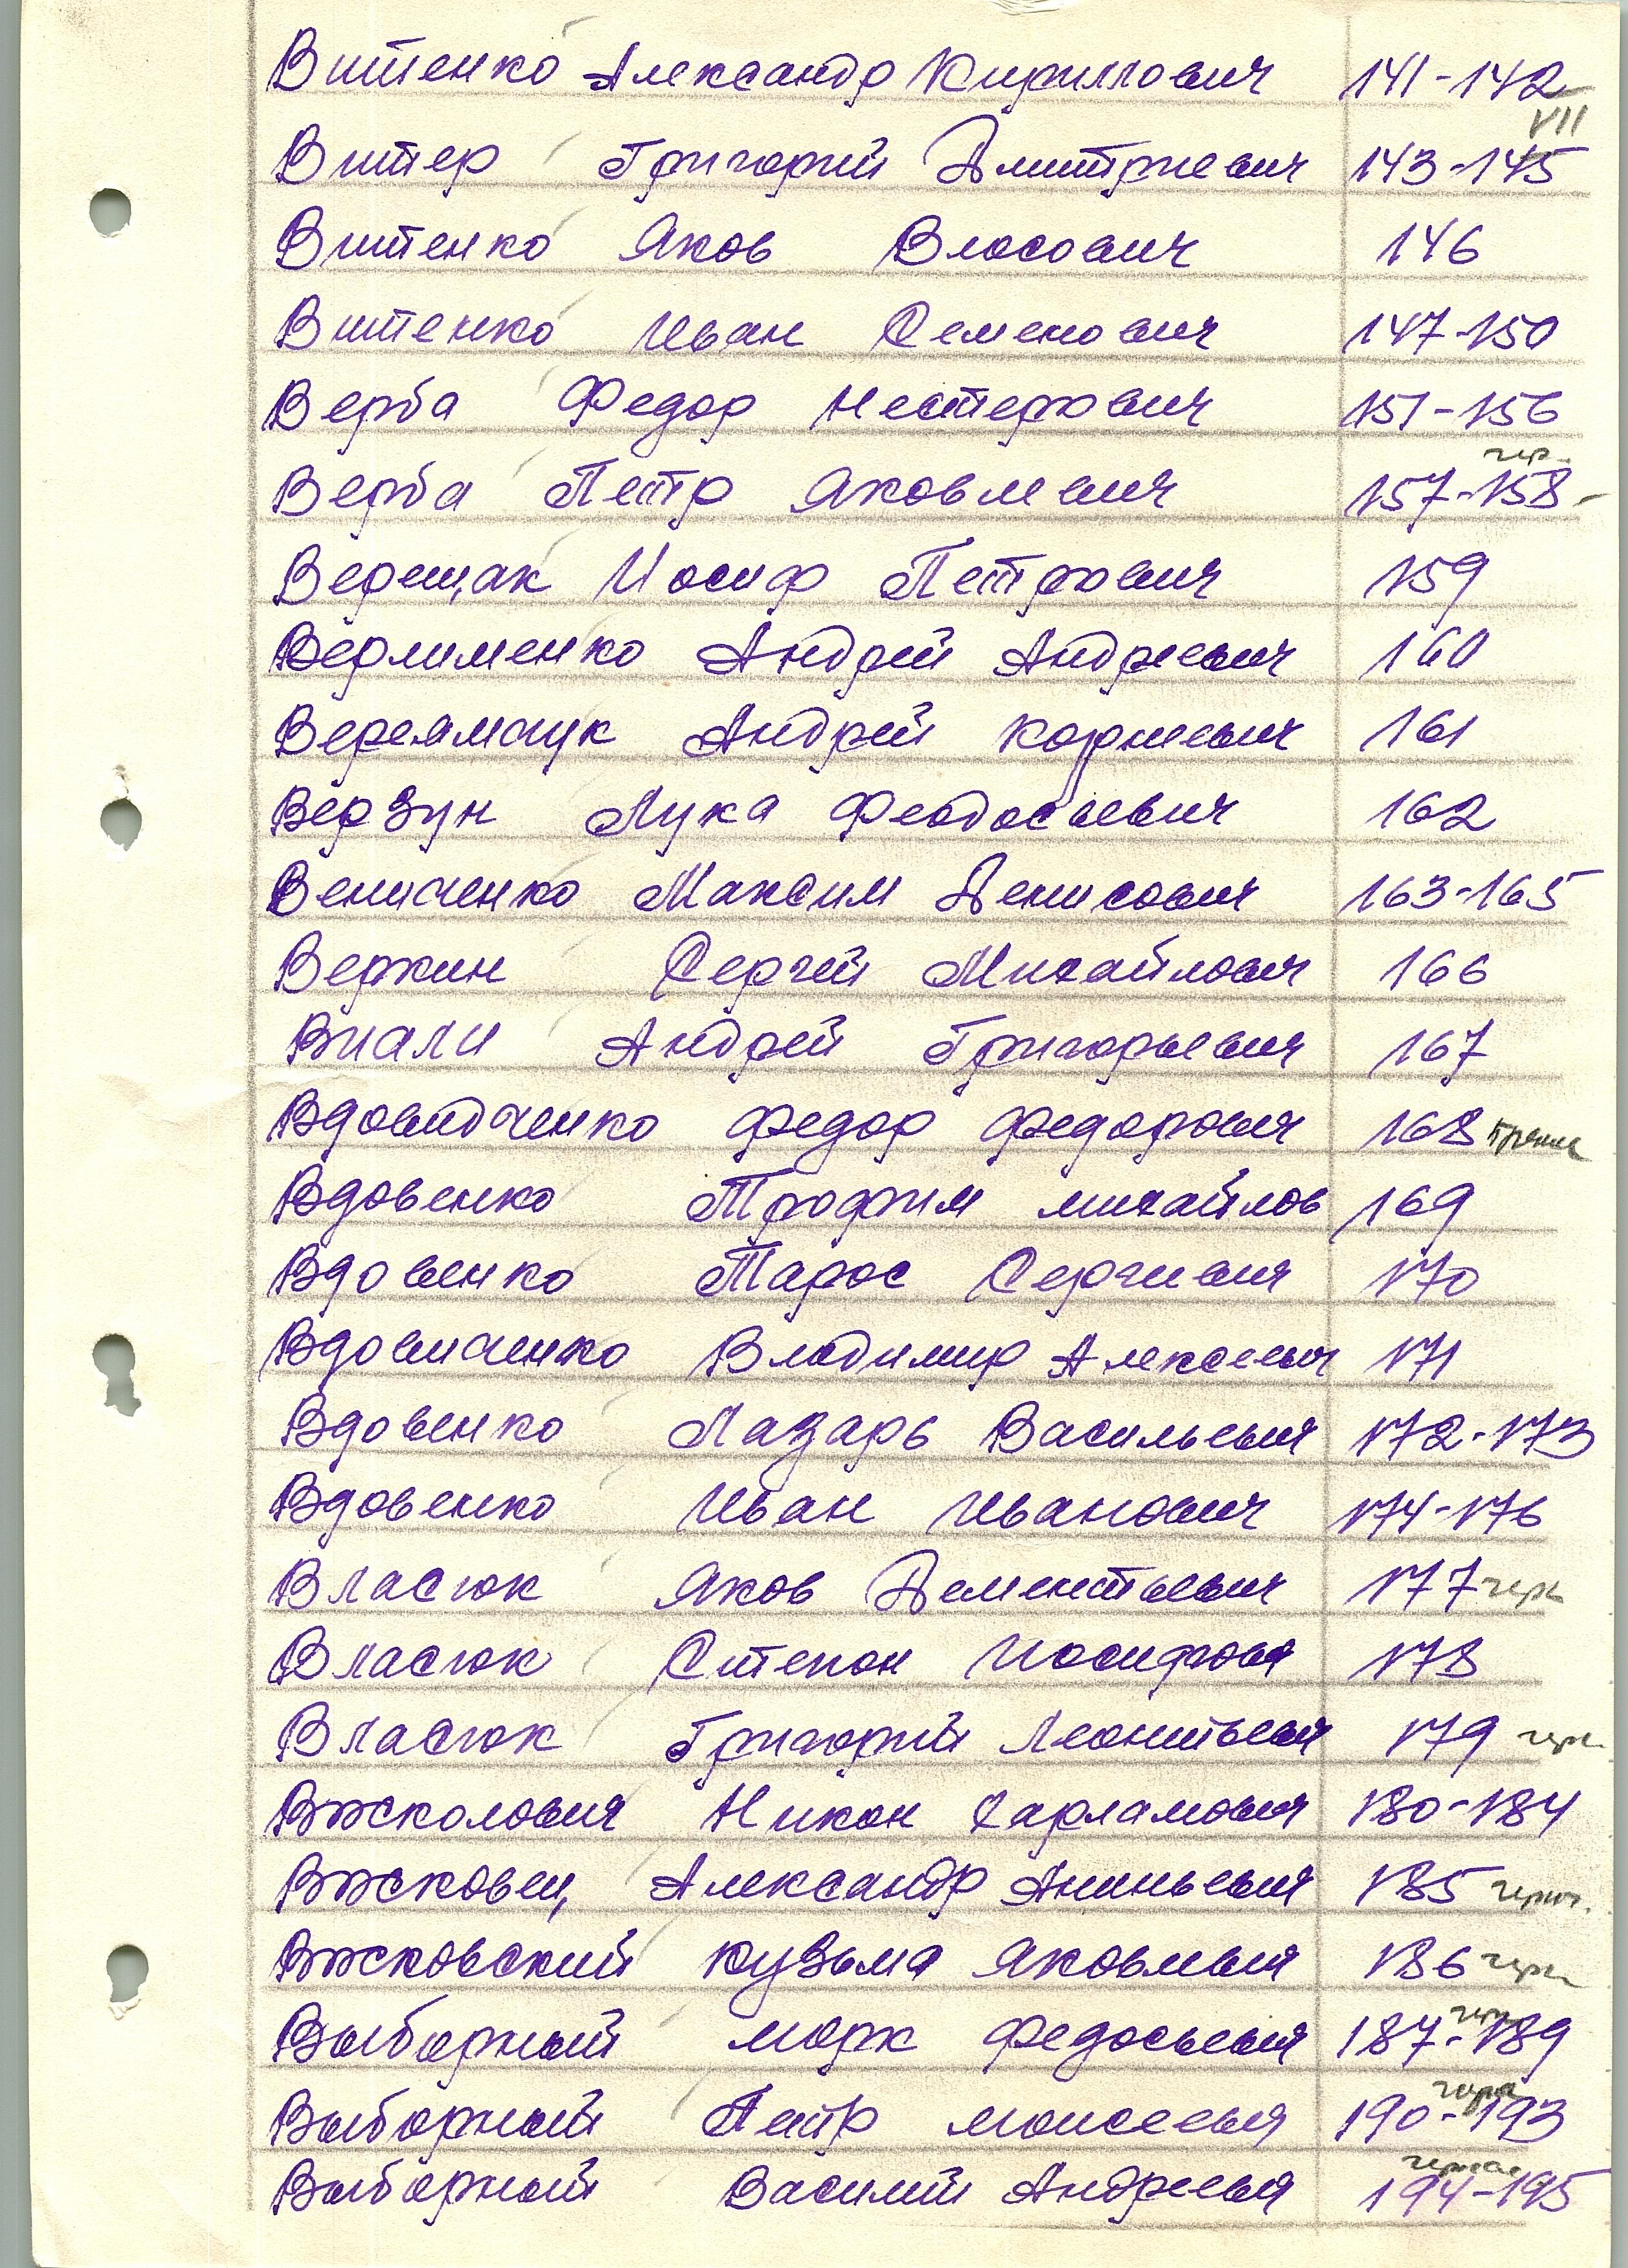 Витенко Александр Кириллович 141-142
VII
Витер Григорий Дмитриевич 143-145
Витенко Яков Власович 146
Витенко Иван Семенович 147-150
Верба Федор Нестерович 151-156
чер.
Верба Петр Яковлевич 157-158-
Верещак Иосиф Петрович 159
Верлименко Андрей Андреевич 160
Веремчук Андрей Корнеевич 161
Верзун Лука Феодосьевич 162
Вениченко Максим Денисович 163-165
Веркин Сергей Михайлович 166
Виали Андрей Григорьевич 167
Вдовидченко Федор Федорович 168
Вдовенко Трофим Михайлов 169
Вдовенко Тарас Сергиевич 170
Вдовиченко Владимир Алексеевич 171
Вдовенко Лазарь Васильевич 172-173
Вдовенко Иван Иванович 174-176
Власюк Яков Дементьевич 177 черн
Власюк Степан Иосифович 178
Власюк Григорий Леонтьевич 179 черн.
Вжсколович Никон Харламович 180-184
Вжсковец Александр Ананьевич 185 черн.
Вжсковский Кузьма Яковлевич 186 черн
Выборный Марк Федосьевич 187-189
Выборный Петр Моисеевич 190-193
Выборный Василий Андреевич 194-195